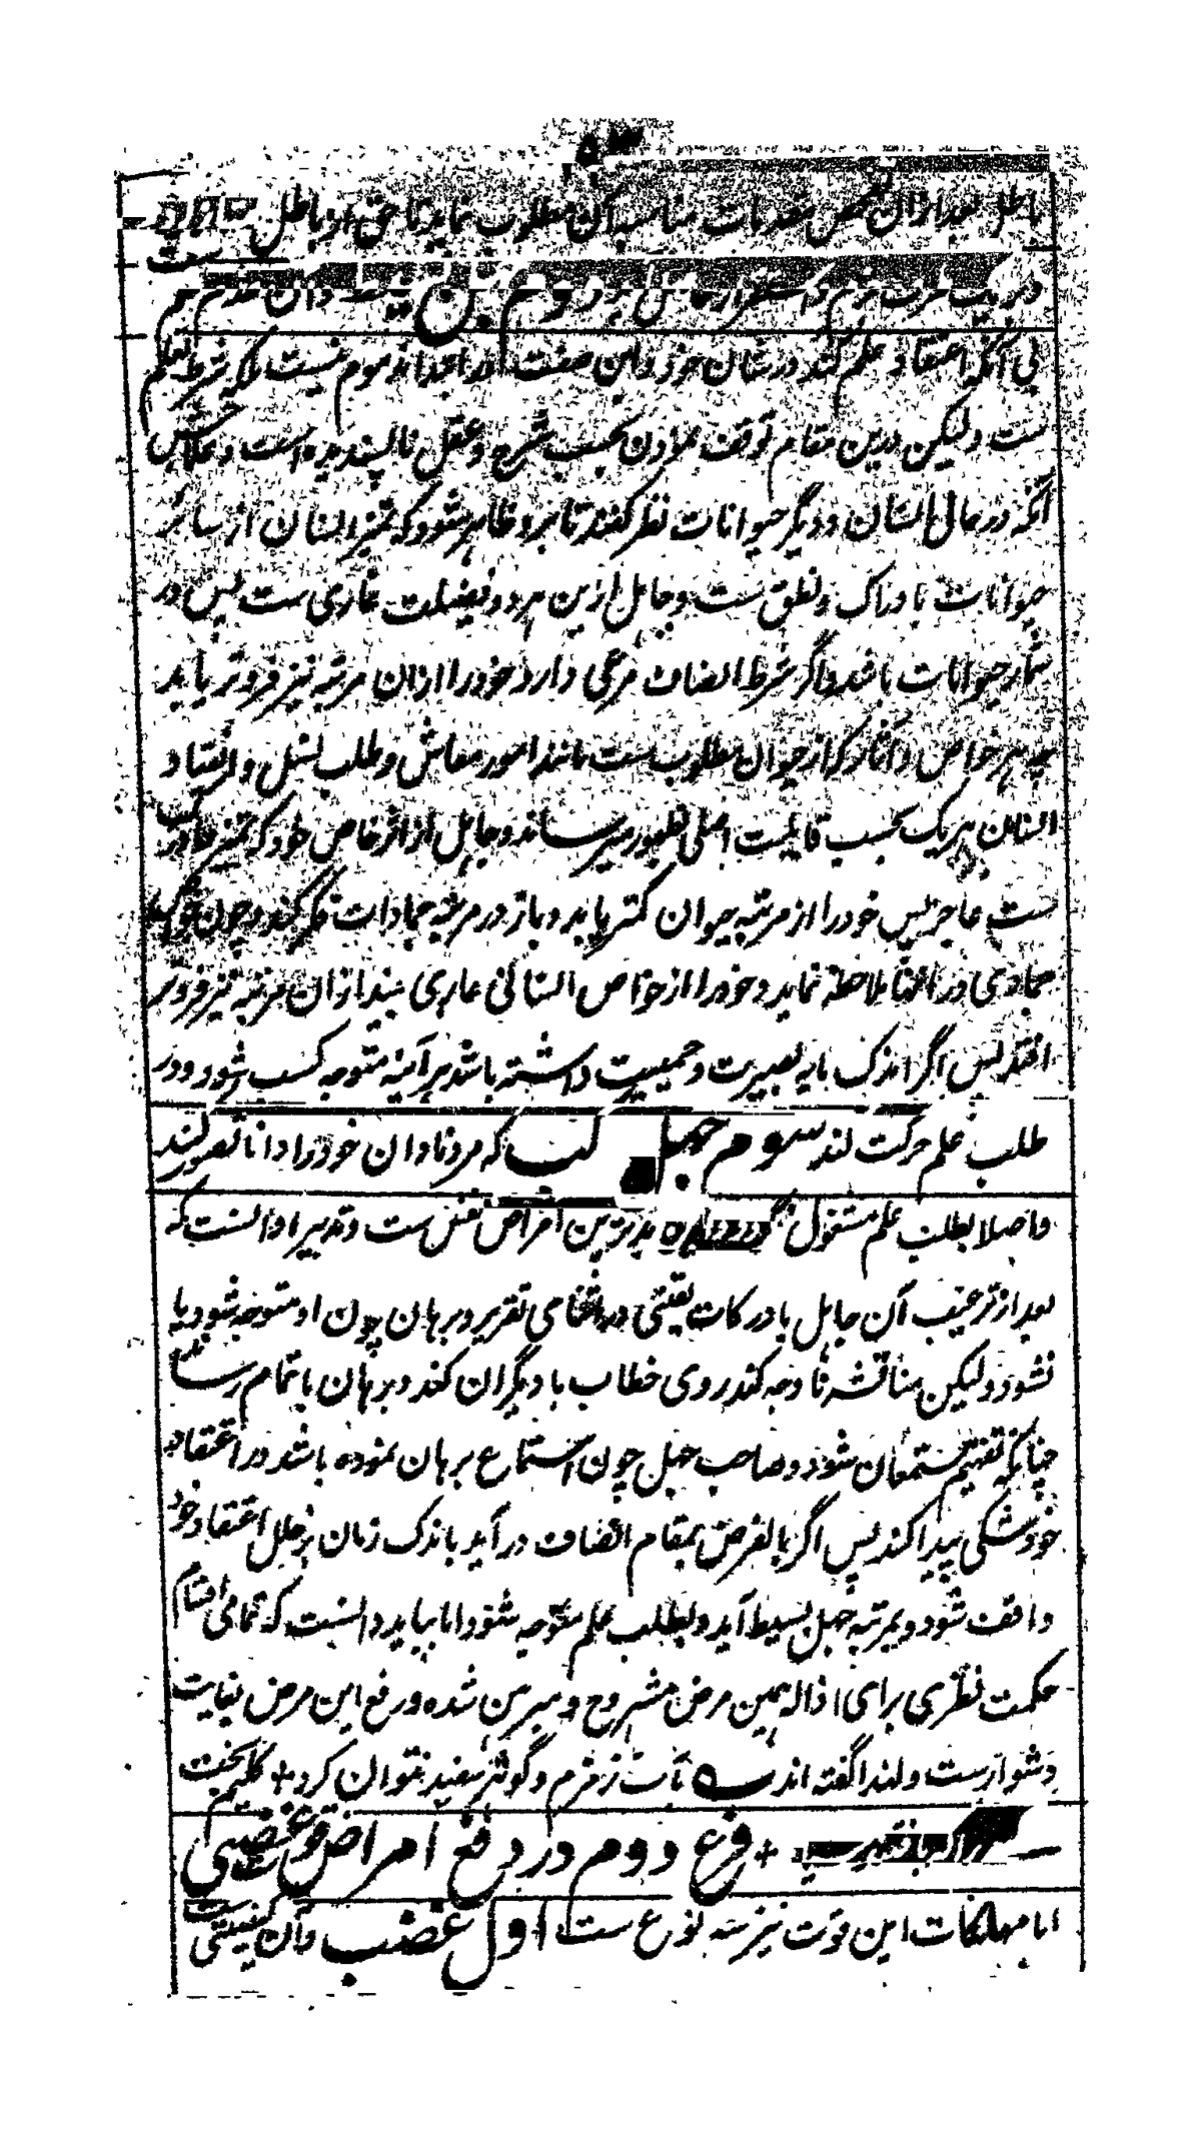 ۵۳
باطل بعد ازان تفحص مقدمات مناسب آن مطلوب نماید تا حق از باطل
دوم جهل بسیط و آن عدم علم ست
بی آنکه اعتقاد علم کند در شان خود و این صفت در ابتدا مذموم نیست بلکه شرط تعلم
ست ولیکن درین مقام توقف نمودن بحسب شرع و عقل ناپسندیده است و علاجش
آنکه در حال انسان و دیگر حیوانات نظر کند تا برو ظاهر شود که تمیز انسان از سائر
حیوانات بادراک و نطق ست و جاهل ازین هر دو فضیلت عاری ست پس در
شمار حیوانات باشد و اگر شرط انصاف مرعی دارد خود را ازان مرتبه نیز فروتر یابد
چه هر خواص و آثار که از حیوان مطلوب ست مانند امور معاش و طلب نسل و انقیاد
انسان هر یک بحسب قابلیت اصلی بظهور میرساند و جاهل از اثر خاص خود که تمیز و ادراک
ست عاجز پس خود را از مرتبه حیوان کمتر یابد و باز در مرتبه جمادات فکر کند و چون خواص
جمادی در انها ملاحظه نماید و خود را از خواص انسانی عاری بیند ازان مرتبه نیز فروتر
افتد پس اگر اندک مایه بصیرت و حمیت داشته باشد هر آینه متوجه کسب شود و در
طلب علم حرکت کند سوم جهل مرکب که مرد نادان خود را دانا تصور کند
و اصلا بطلب علم مشغول نگردد و این بدترین امراض نفس ست و تدبیر او آنست که
بعد از ترغیب آن جاهل بادراکات یقینی در اثنای تقریر و برهان چون او متوجه شود یا
نشود ولیکن مناقشه با وجه کند روی خطاب با دیگران کند و برهان باتمام رساند
چنانکه تفهیم مستمعان شود و صاحب جهل چون استماع برهان نموده باشد در اعتقاد
خود شکی پیدا کند پس اگر بالفرض بمقام انصاف در آید باندک زمان بر خلل اعتقاد خود
واقف شود و بمرتبه جهل بسیط آید و بطلب علم متوجه شود اما بباید دانست که تمامی اقسام
حکمت نظری برای ازاله همین مرض مشروح و مبرهن شده و رفع این مرض بغایت
دشوارست و لهذا گفته اند بآب زمزم و کوثر سفید نتوان کرد + گلیم بخت
+ فرع دوم در دفع امراض قوت غضبی
اما مهلکات این قوت نیز سه نوع ست اول غضب و آن کیفیتی ست